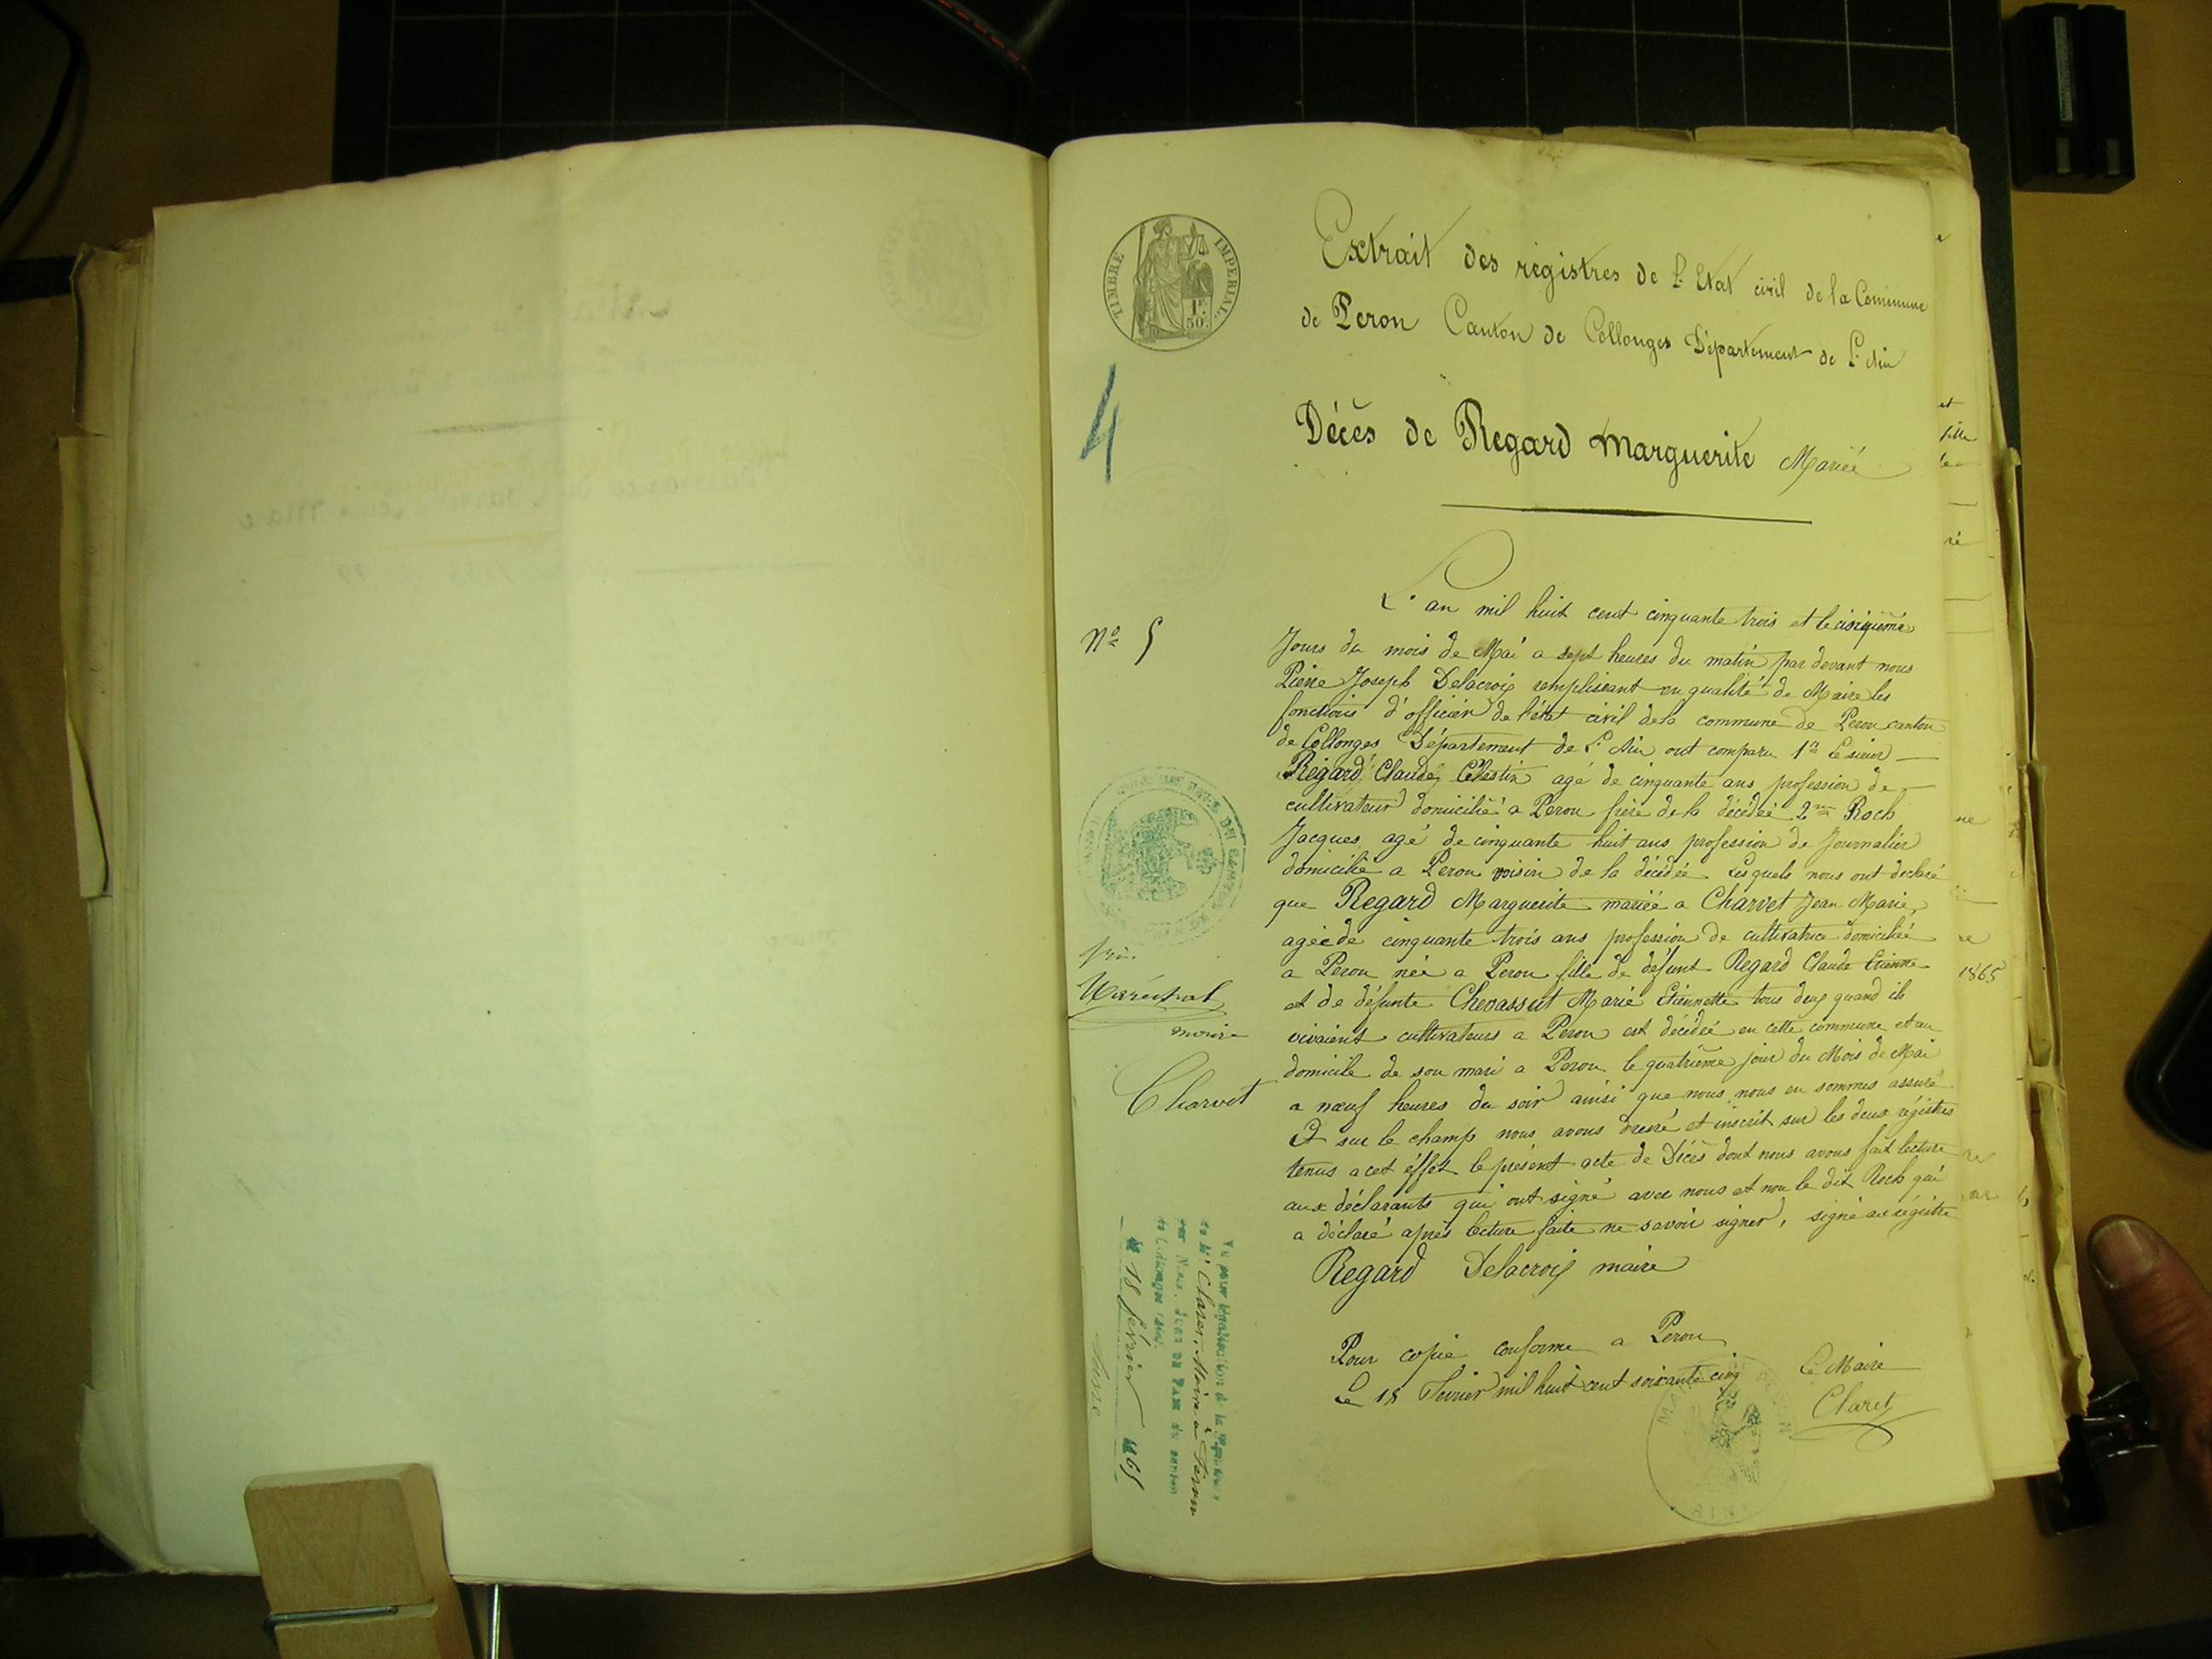 TIMBRE IMPERIAL
1F
50C
Extrait des régistres de L'Etat civil de la Commune
de Peron Canton de Collonges Département de L'Ain
4
Décès de Regard Marguerite Mariée
N° 5
L'an mil huit cent cinquante trois et le cinquième
Jours du mois de Mai a sept heures du matin par devant nous
Pierre Joseph Delacroix remplissant en qualité de Maire les
fonctions d'officier de l'état civil de la commune de Peron canton
de Collonges Département de L'Ain ont comparu 1er Le sieur
Regard Claude Célestin agé de cinquante ans profession de
cultivateur domicilié a Peron frère de la décédée 2me Roch
Jacques agé de cinquante huit ans profession de Journalier
domicilié a Peron voisin de la décédée Lesquels nous ont declaré
que Regard Marguerite mariée a Charvet Jean Marie,
agée de cinquante trois ans profession de cultivatrice domiciliée
a Peron née a Peron fille de défunt Regard Claude Etienne
et de défunte Chevassut Marie Etiennette tous deux quand ils
vivaient cultivateurs a Peron est décédée en cette commune et au
domicile de son mari a Peron le quatrième jour du Mois de Mai
a nœuf heures du soir ainsi que nous nous en sommes assuré
Et sur le champ nous avons dressé et inscrit sur les deux régistres
tenus a cet éffet le présent acte de Décès dont nous avons fait lecture
aux déclarants qui ont signé avec nous et non le dit Roch qui
a déclaré après lecture faite ne savoir signer, signé au régistre
Regard Delacroix maire
Pour copie conforme a Peron
Le 18 Fevrier mil huit cent soixante cinq
Le Maire
Claret
Maréchal
Charvet
Vu pour légalisation de la
Claret, Maire à Peron
par Nous, JUGE DE PAIX du canton
de Collonges (Ain).
le 18 février 1865
1865